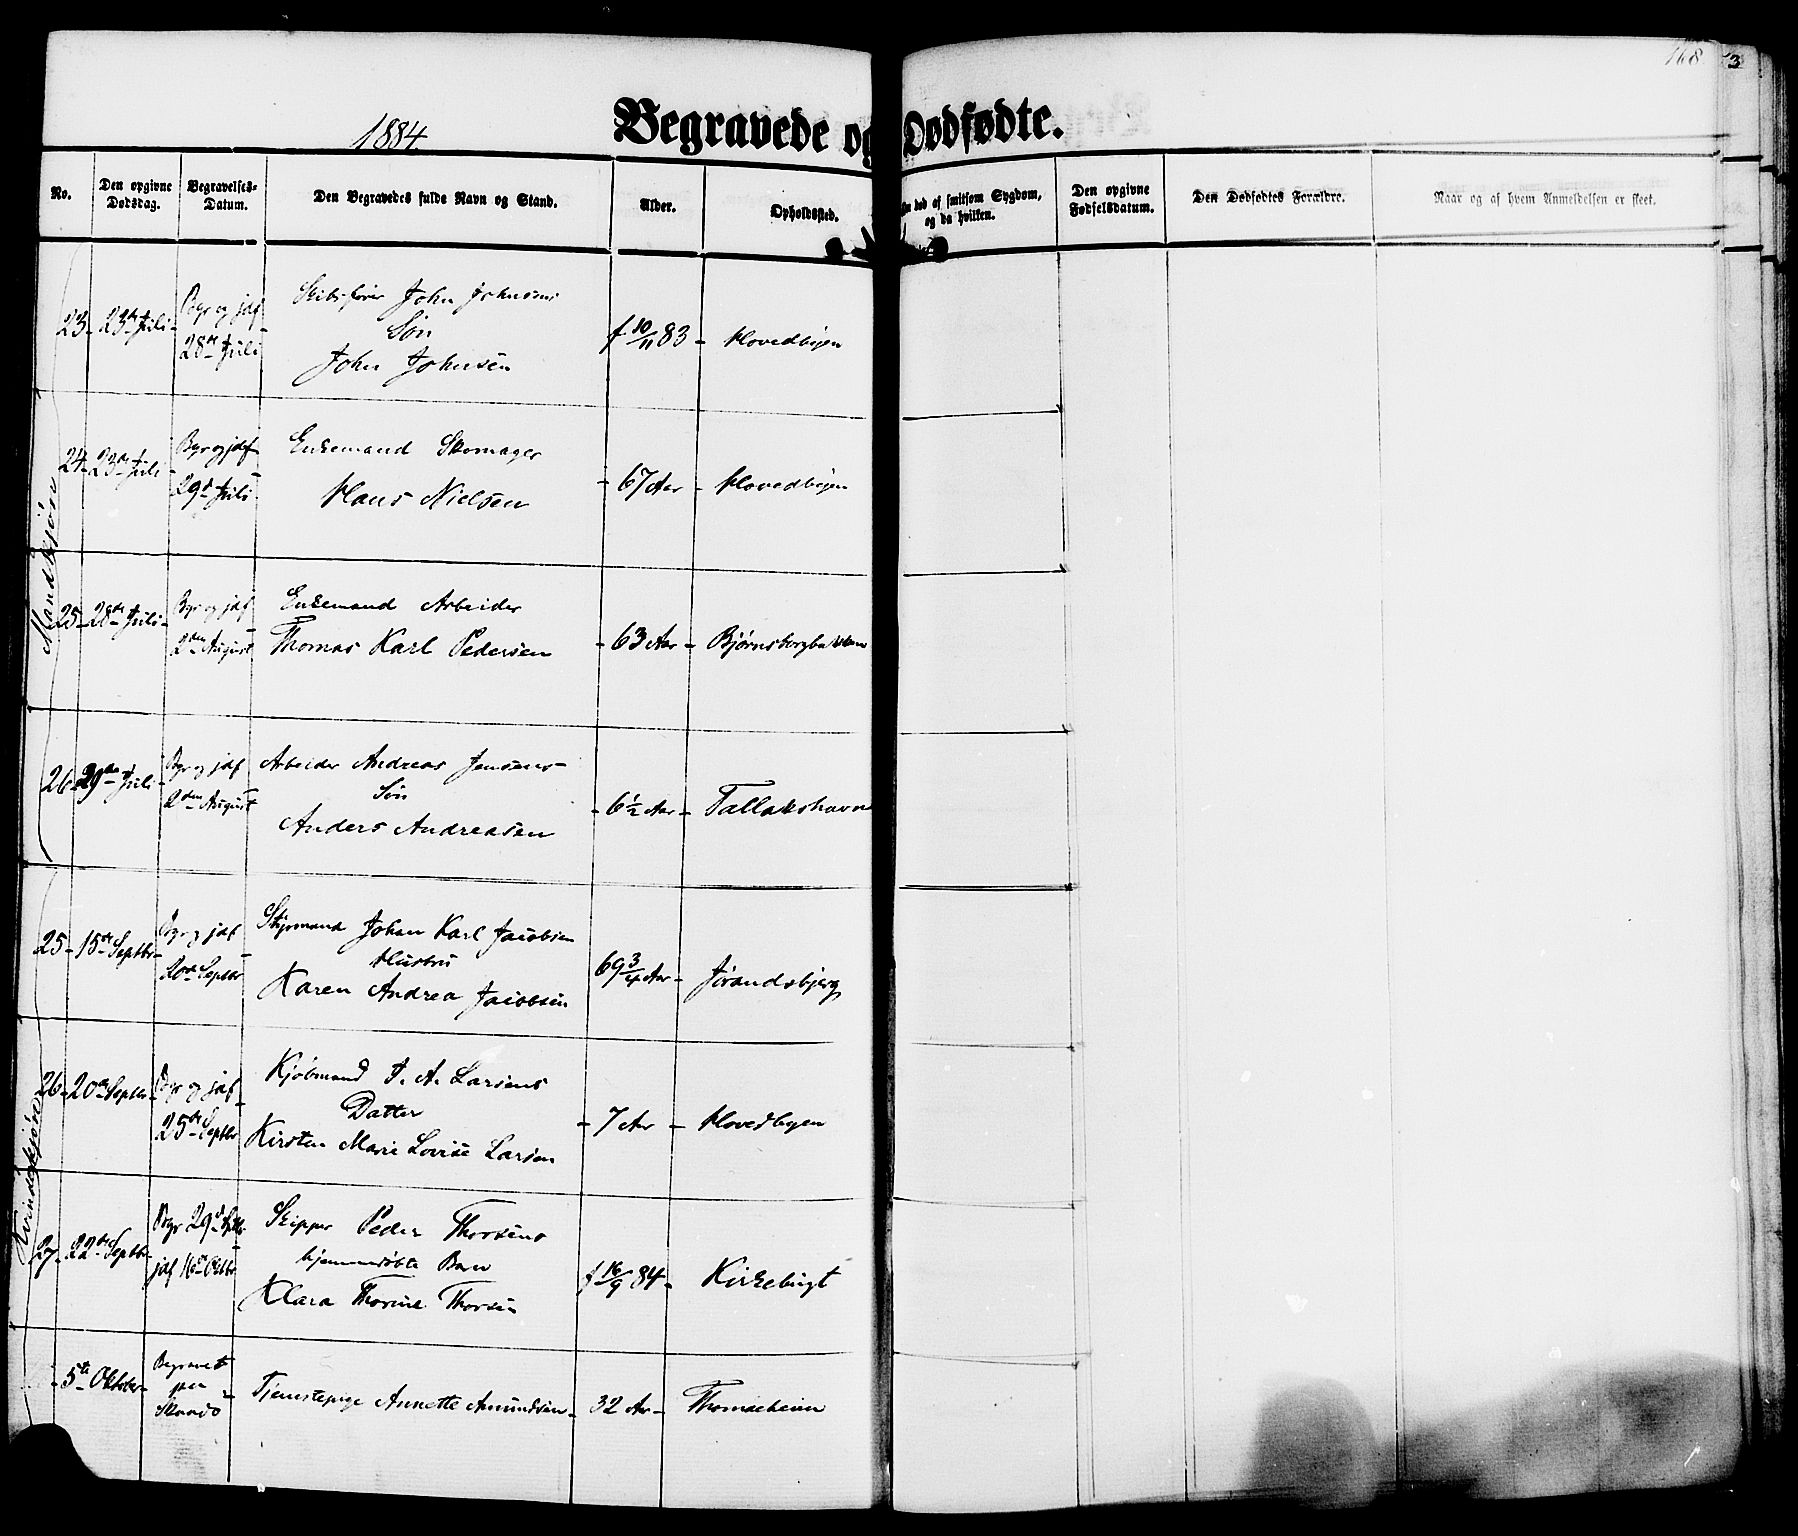 168
3
1884
Begravede og Dødfødte.
No.
Den opgivne Dødsdag.
Begravelses-Datum.
Den Begravedes fulde Navn og Stand.
Alder.
Opholdssted.
død af smitsom Sygdom, og da hvilken.
Den opgivne Fødselsdatum.
Den Dødfødtes Forældre.
Naar og af hvem Anmeldelsen er skeet.
Mandkjøn
23 - 23de Juli - Begr og jdf 28de Juli
Skibsfører John Johnsens
Søn
John Johnsen
f 10/11 83 - Hovedbyen
24 - 23de Juli - Begr og jdf 29de Juli
Enkemand Skomager
Hans Nielsen
- 67 Aar - Hovedbyen
25 - 28de Juli - Begr og jdf 2den August
Enkemand Arbeider
Thomas Karl Pedersen
- 63 Aar - Bjørnsborgbakken
26 - 29de Juli - Begr og jdf 2den August
Arbeider Andreas Jensens
Søn
Anders Andreasen
- 6 1/2 Aar - Tallakshavn
Kvindekjøn
25 - 15de Septbr - Begr og jdf 20de Septbr
Styrmand Johan Karl Jacobsen
Hustru
Karen Andrea Jacobsen
69 3/4 Aar - Jørandsbjerg
26 - 20de Septbr - Begr og jdf 25de Septbr
Kjøbmand T. A. Larsens
Datter
Kirsten Marie Lovise Larsen
- 7 Aar - Hovedbyen
27 - 22de Septbr - Begr 29de Septbr jdf 16de Oktbr
Skipper Peder Thorsens
hjemmedøbte Barn
Klara Thorine Thorsen
f 16/9 84 - Kirkebugt
- 5te Oktober - Begravet paa Skaadø
Tjenestepige Annette Amundsen - 32 Aar - Thomasheien